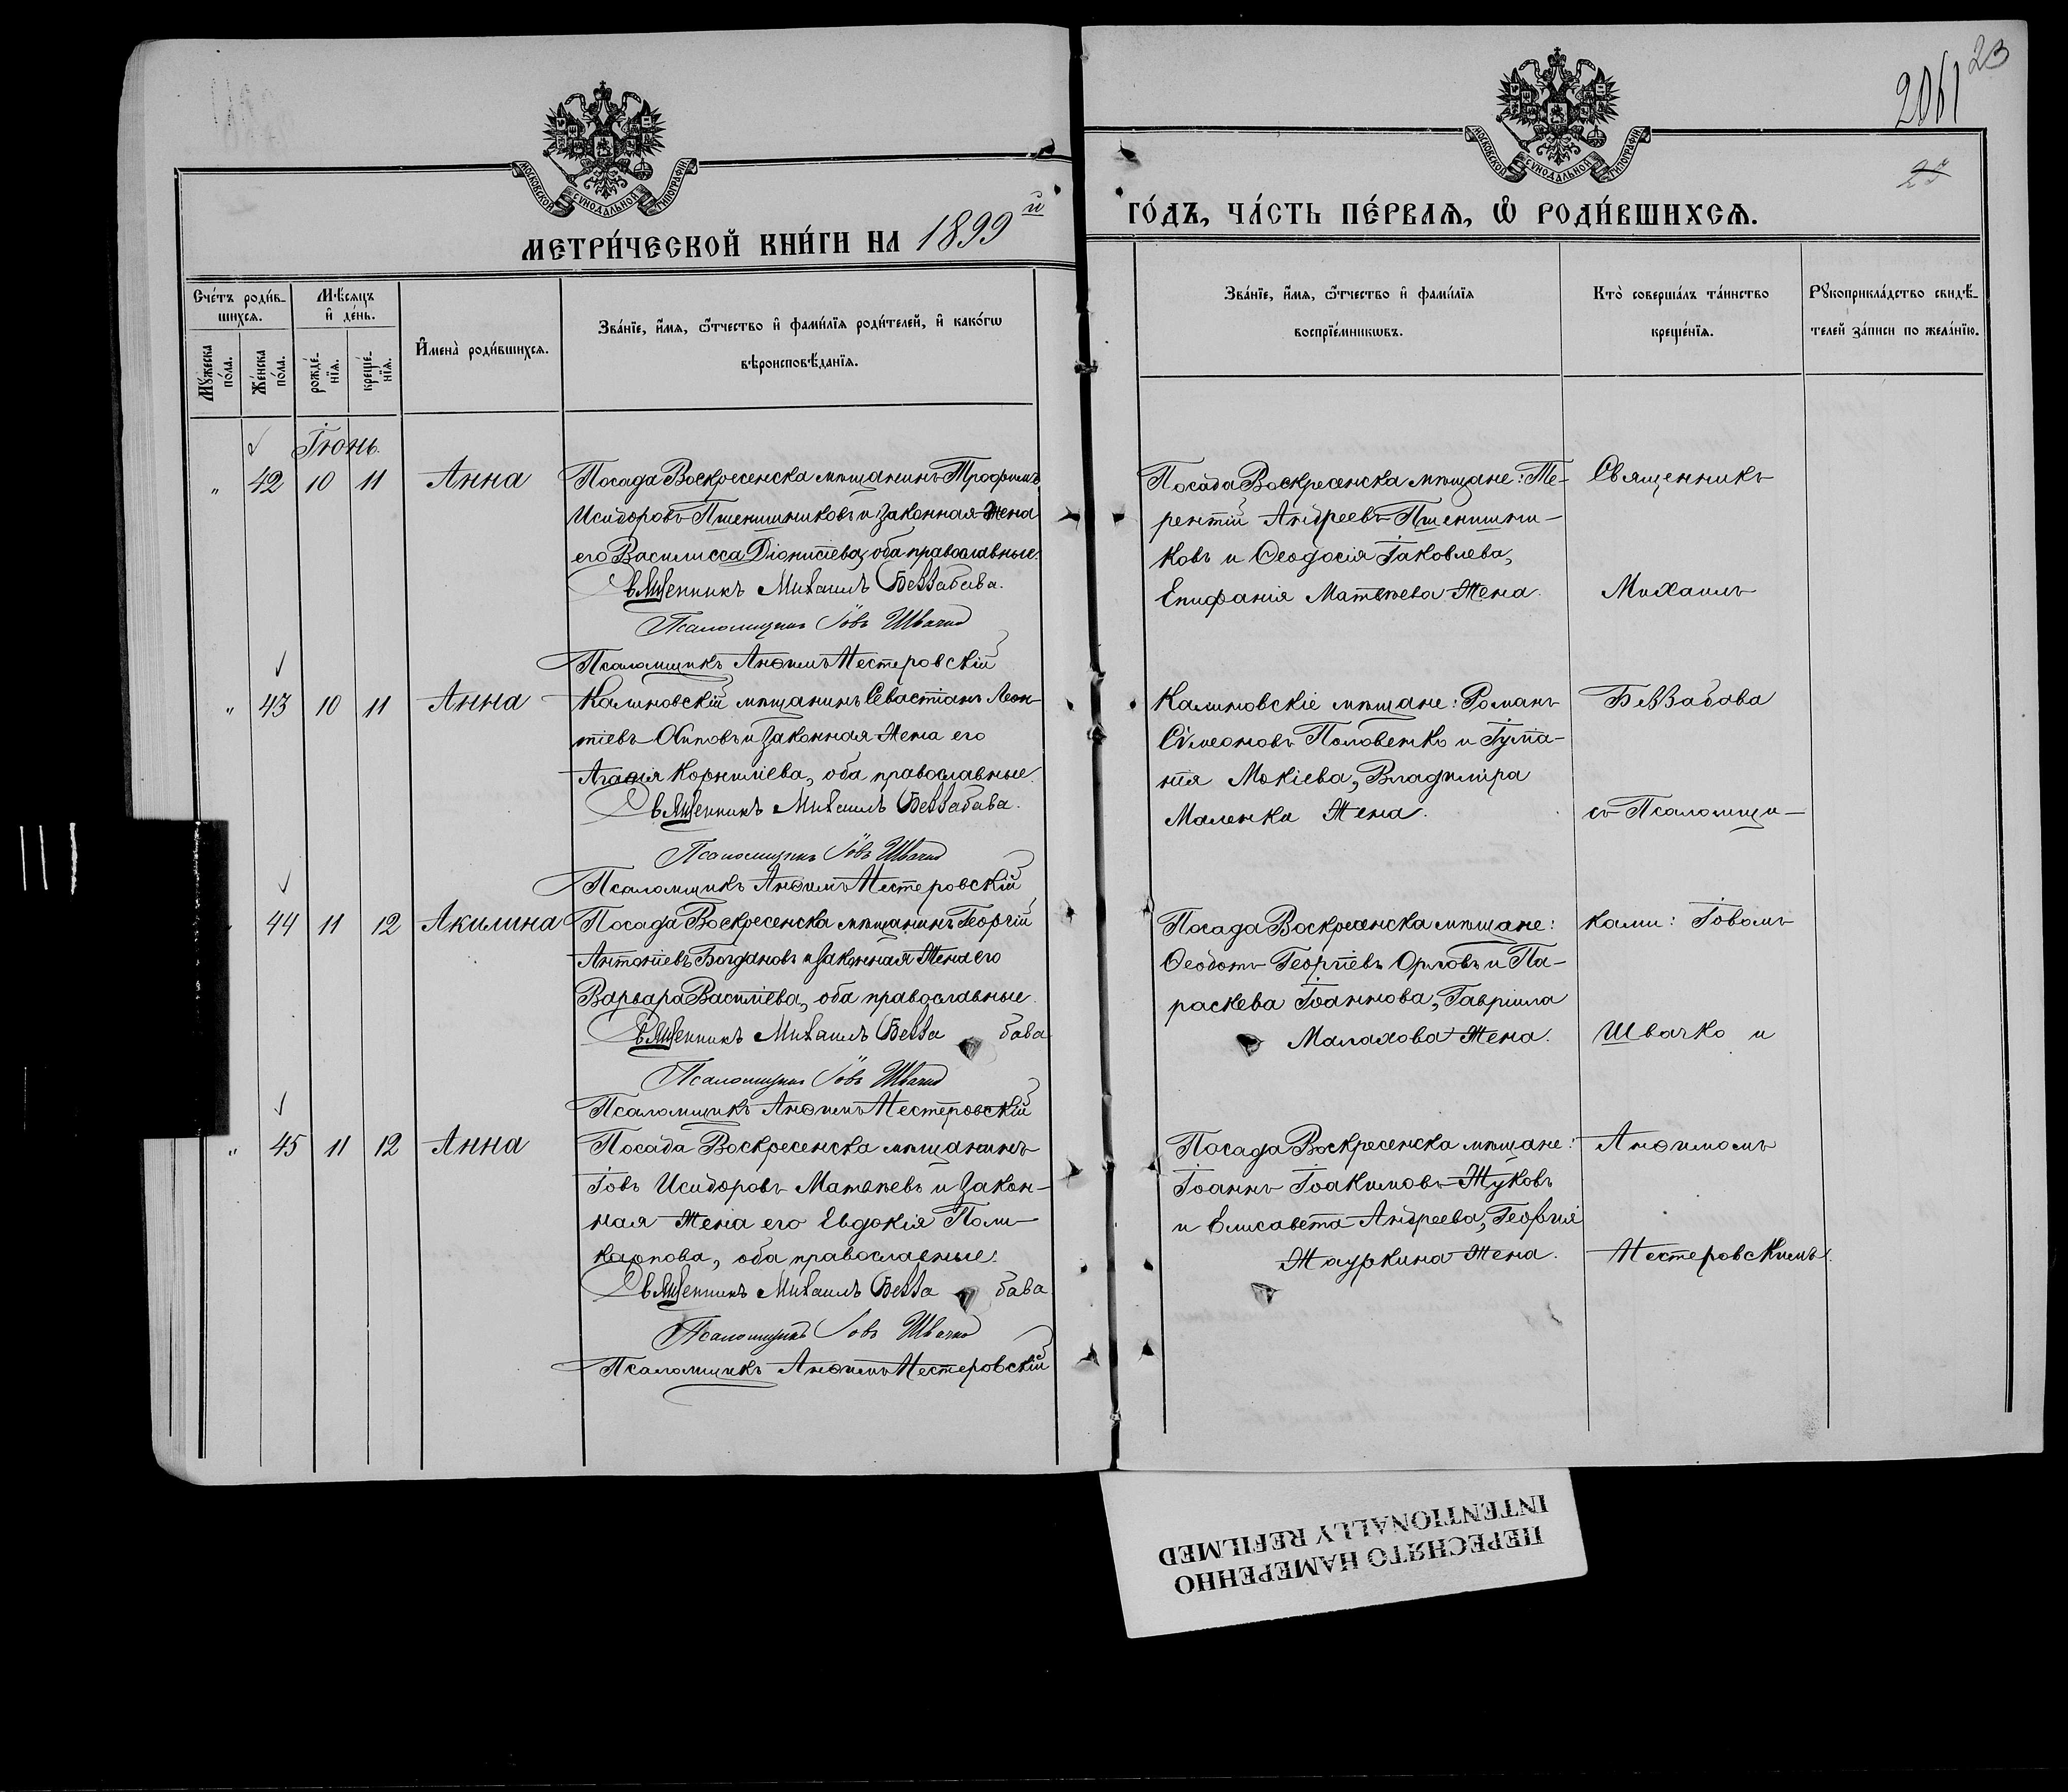 2061
23
25
МОСКОВСКОЙ СѴНОДАЛЬНОЙ ТИПОГРАФІИ
МОСКОВСКОЙ СѴНОДАЛЬНОЙ ТИПОГРАФІИ
МЕТРИ́ЧЕСКОЙ КНИ́ГИ НА 1899й
ГО́ДЪ, ЧА́СТЬ ПЕ́РВАѦ, Ѡ҆ РОДИ́ВШИХСѦ.
Сче́тъ роди́в-
шихсѧ.
Мѣ́сѧцъ
и҆ де́нь.
Мꙋ́жеска по́ла.
Же́нска по́ла.
рожде́-
нїѧ.
креще́-
нїѧ.
И҆мена̀ роди́вшихсѧ.
Зва́нїе, и҆́мѧ, ѻ҆́тчество и҆ фами́лїѧ роди́телей, и҆ како́гѡ
вѣроисповѣ́данїѧ.
Зва́нїе, и҆́мѧ, ѻ҆́тчество и҆ фами́лїѧ
воспрїе́мникѡвъ.
Кто̀ соверша́лъ та́инство
креще́нїѧ.
Рꙋкоприкла́дство свидѣ́-
телей за́писи по жела́нїю.
Іюнь.
" 42 10 11 Анна
Посада Воскресенска мѣщанинъ Трофимъ
Исидоровъ Пшенишниковъ и законная жена
его Василисса Діонисіева, оба православные.
Священникъ Михаилъ Беззабава.
Псаломщикъ Іовъ Швачко
Псаломщикъ Анѳимъ Нестеровскій
Посада Воскресенска мѣщане: Те-
рентій Андреевъ Пшенишни-
ковъ и Ѳеодосія Іаковлева,
Епифанія Матвѣева жена.
Священникъ
Михаилъ
" 43 10 11 Анна
Калиновскій мѣщанинъ Севастіанъ Леон-
тіевъ Осиповъ и законная жена его
Агаѳія Корниліева, оба православные.
Священникъ Михаилъ Беззабава.
Псаломщикъ Іовъ Швачко
Псаломщикъ Анѳимъ Нестеровскій
Калиновскіе мѣщане: Романъ
Сѵмеоновъ Половенко и Іуліа-
нія Мокіева, Владиміра
Маленки жена.
Беззабава
съ Псаломщи-
44 11 12 Акилина
Посада Воскресенска мѣщанинъ Георгій
Антоніевъ Богдановъ и законная жена его
Варвара Василіева, оба православные.
Священникъ Михаилъ Безза бава
Псаломщикъ Іовъ Швачко
Псаломщикъ Анѳимъ Нестеровскій
Посада Воскресенска мѣщане:
Ѳеодотъ Георгіевъ Орловъ и Па-
раскева Іоаннова, Гавріила
Малахова жена.
ками: Іовомъ
Швачко и
" 45 11 12 Анна
Посада Воскресенска мѣщанинъ
Іовъ Исидоровъ Матвѣевъ и закон-
ная жена его Евдокія Поли-
карпова, оба православные.
Священникъ Михаилъ Безза бава
Псаломщикъ Іовъ Швачко
Псаломщикъ Анѳимъ Нестеровскій
Посада Воскресенска мѣщане:
Іоаннъ Іоакимовъ Жуковъ
и Елисавета Андреева, Георгія
Жауркина жена.
Анѳимомъ
Нестеровскимъ.
ПЕРЕСНЯТО НАМЕРЕННО
INTENTIONALLY REFILMED